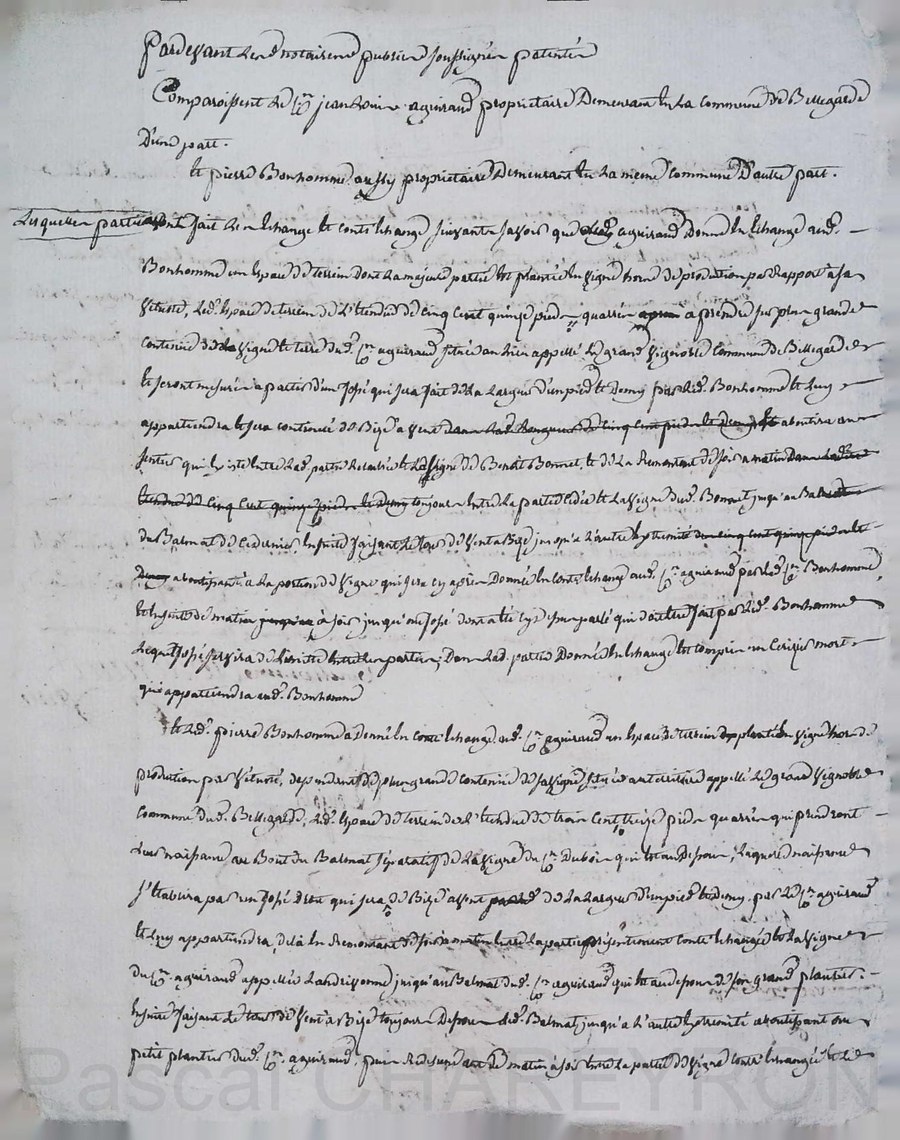 Pardevant Les notaires publics soussignés patentés
Comparoissent Le C.en jean Louis aguiraud propriétaire Demeurant En La Commune de Bellegarde
D'une part.
Et pierre Bonhomme aussy propriétaire Demeurant En La même Commune D'autre part.
Lesquelles parties ont fait Les Echange Et contr'Echange suivants savoir que aguiraud Donne En Echange aud.
Bonhomme un Espace de terrein Dont La majeure partie Est plantée En vigne hors de prodution par Rapport à sa
vétusté, Led. Espace de terrein de L'étendue de cinq cent quinze pieds quarrés a prendre sur plus grande
contenue de vigne Et terre dud. C.en aguiraud située au Lieu appellé Le grand vignoble Commune de Bellegarde
Et seront mesurés a partir d'un fossé qui sera fait de La Largeur d'un pied Et Demy par Led. Bonhomme Et Luy
appartiendra Et sera continué de Bize a vent aboutira au
sentier qui Existe Entre Lad. partie Et La vigne de Benoit Bonnet, Et de La Remontant de soir a matin
toujours Entre La partie cédée Et La vigne dud. Bonnet jusqu'au
du Balmat de ce dernier Ensuite faisant Le tour de vent a Bize jusqu'a L'autre Extrémité
aboutissant a La portion de vigne qui sera cy après Donnée En contr'Echange aud. C.en aguiraud par Led. C.en Bonhomme,
Et Ensuite de matin à soir jusqu'au fossé dont a été cy dessus parlé qui doit Etre fait par Led. Bonhomme
Lequel fossé servira de Limitte Entre Les parties; Dans Lad. partie Donnée En Echange Est compris un Cerizier mort
qui appartiendra aud. Bonhomme
Et Led. pierre Bonhomme a Donné En contr'Echange aud. C.en aguiraud un Espace de terrein planté En vigne hors de
prodution par vétusté, dépendant de plus grande contenue de sa vigne située au territoire appellé Le grand vignoble
Commune dud. Bellegarde, Led. Espace de terrein de L'étendue de trois cent treize pieds quarrés qui prendront
Leur naissance au Bout du Balmat séparatif de La vigne du C.en Dubois qui Est au Dessous, Laquelle naissance
s'établira par un fossé droit qui sera de Bize a vent de La Largeur d'un pied Et Demy par Le C.en aguiraud
Et Luy appartiendra, de La En Remontant de soir a matin Entre La partie présentement contr'Echangée Et La vigne
du C.en aguiraud appellée jusqu'au Balmat dud. C.en aguiraud qui Est au dessous de son grand plantier.
Ensuite faisant Le tour de vent a Bize toujours Dessous Led. Balmat jusqu'a L'autre Extrémité aboutissant au
petit plantier dud. C.en aguiraud, puis Redescendant de matin à soir Entre La partie de vigne contr'Echangée Et Le
Pascal CHAREYRON